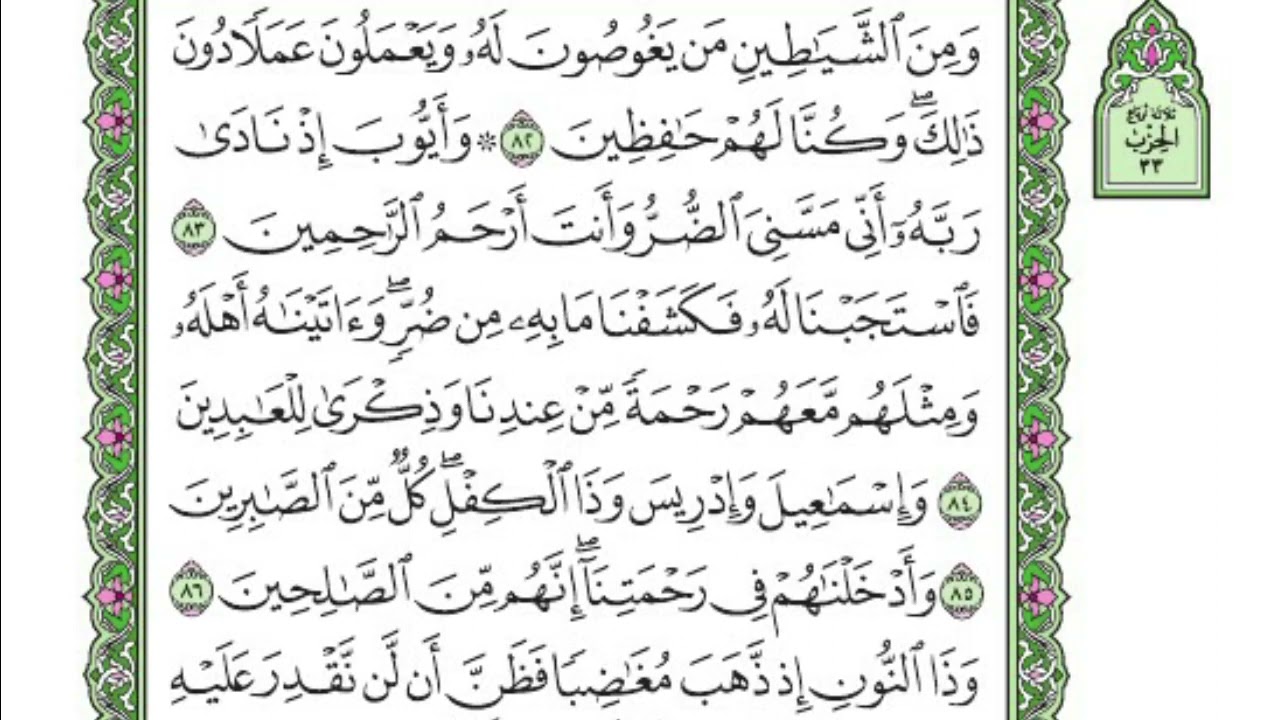 وَمِنَ ٱلشَّيَـٰطِينِ مَن يَغُوصُونَ لَهُۥ وَيَعْمَلُونَ عَمَلًا دُونَ
ذَٰلِكَ ۖ وَكُنَّا لَهُمْ حَـٰفِظِينَ ٨٢ ۞ وَأَيُّوبَ إِذْ نَادَىٰ
رَبَّهُۥٓ أَنِّى مَسَّنِىَ ٱلضُّرُّ وَأَنتَ أَرْحَمُ ٱلرَّٰحِمِينَ ٨٣
فَٱسْتَجَبْنَا لَهُۥ فَكَشَفْنَا مَا بِهِۦ مِن ضُرٍّ ۖ وَءَاتَيْنَـٰهُ أَهْلَهُۥ
وَمِثْلَهُم مَّعَهُمْ رَحْمَةً مِّنْ عِندِنَا وَذِكْرَىٰ لِلْعَـٰبِدِينَ
٨٤ وَإِسْمَـٰعِيلَ وَإِدْرِيسَ وَذَا ٱلْكِفْلِ ۖ كُلٌّ مِّنَ ٱلصَّـٰبِرِينَ
٨٥ وَأَدْخَلْنَـٰهُمْ فِى رَحْمَتِنَآ ۖ إِنَّهُم مِّنَ ٱلصَّـٰلِحِينَ ٨٦
وَذَا ٱلنُّونِ إِذ ذَّهَبَ مُغَـٰضِبًا فَظَنَّ أَن لَّن نَّقْدِرَ عَلَيْهِ
ثلاثة أرباع
الحزب
٣٣